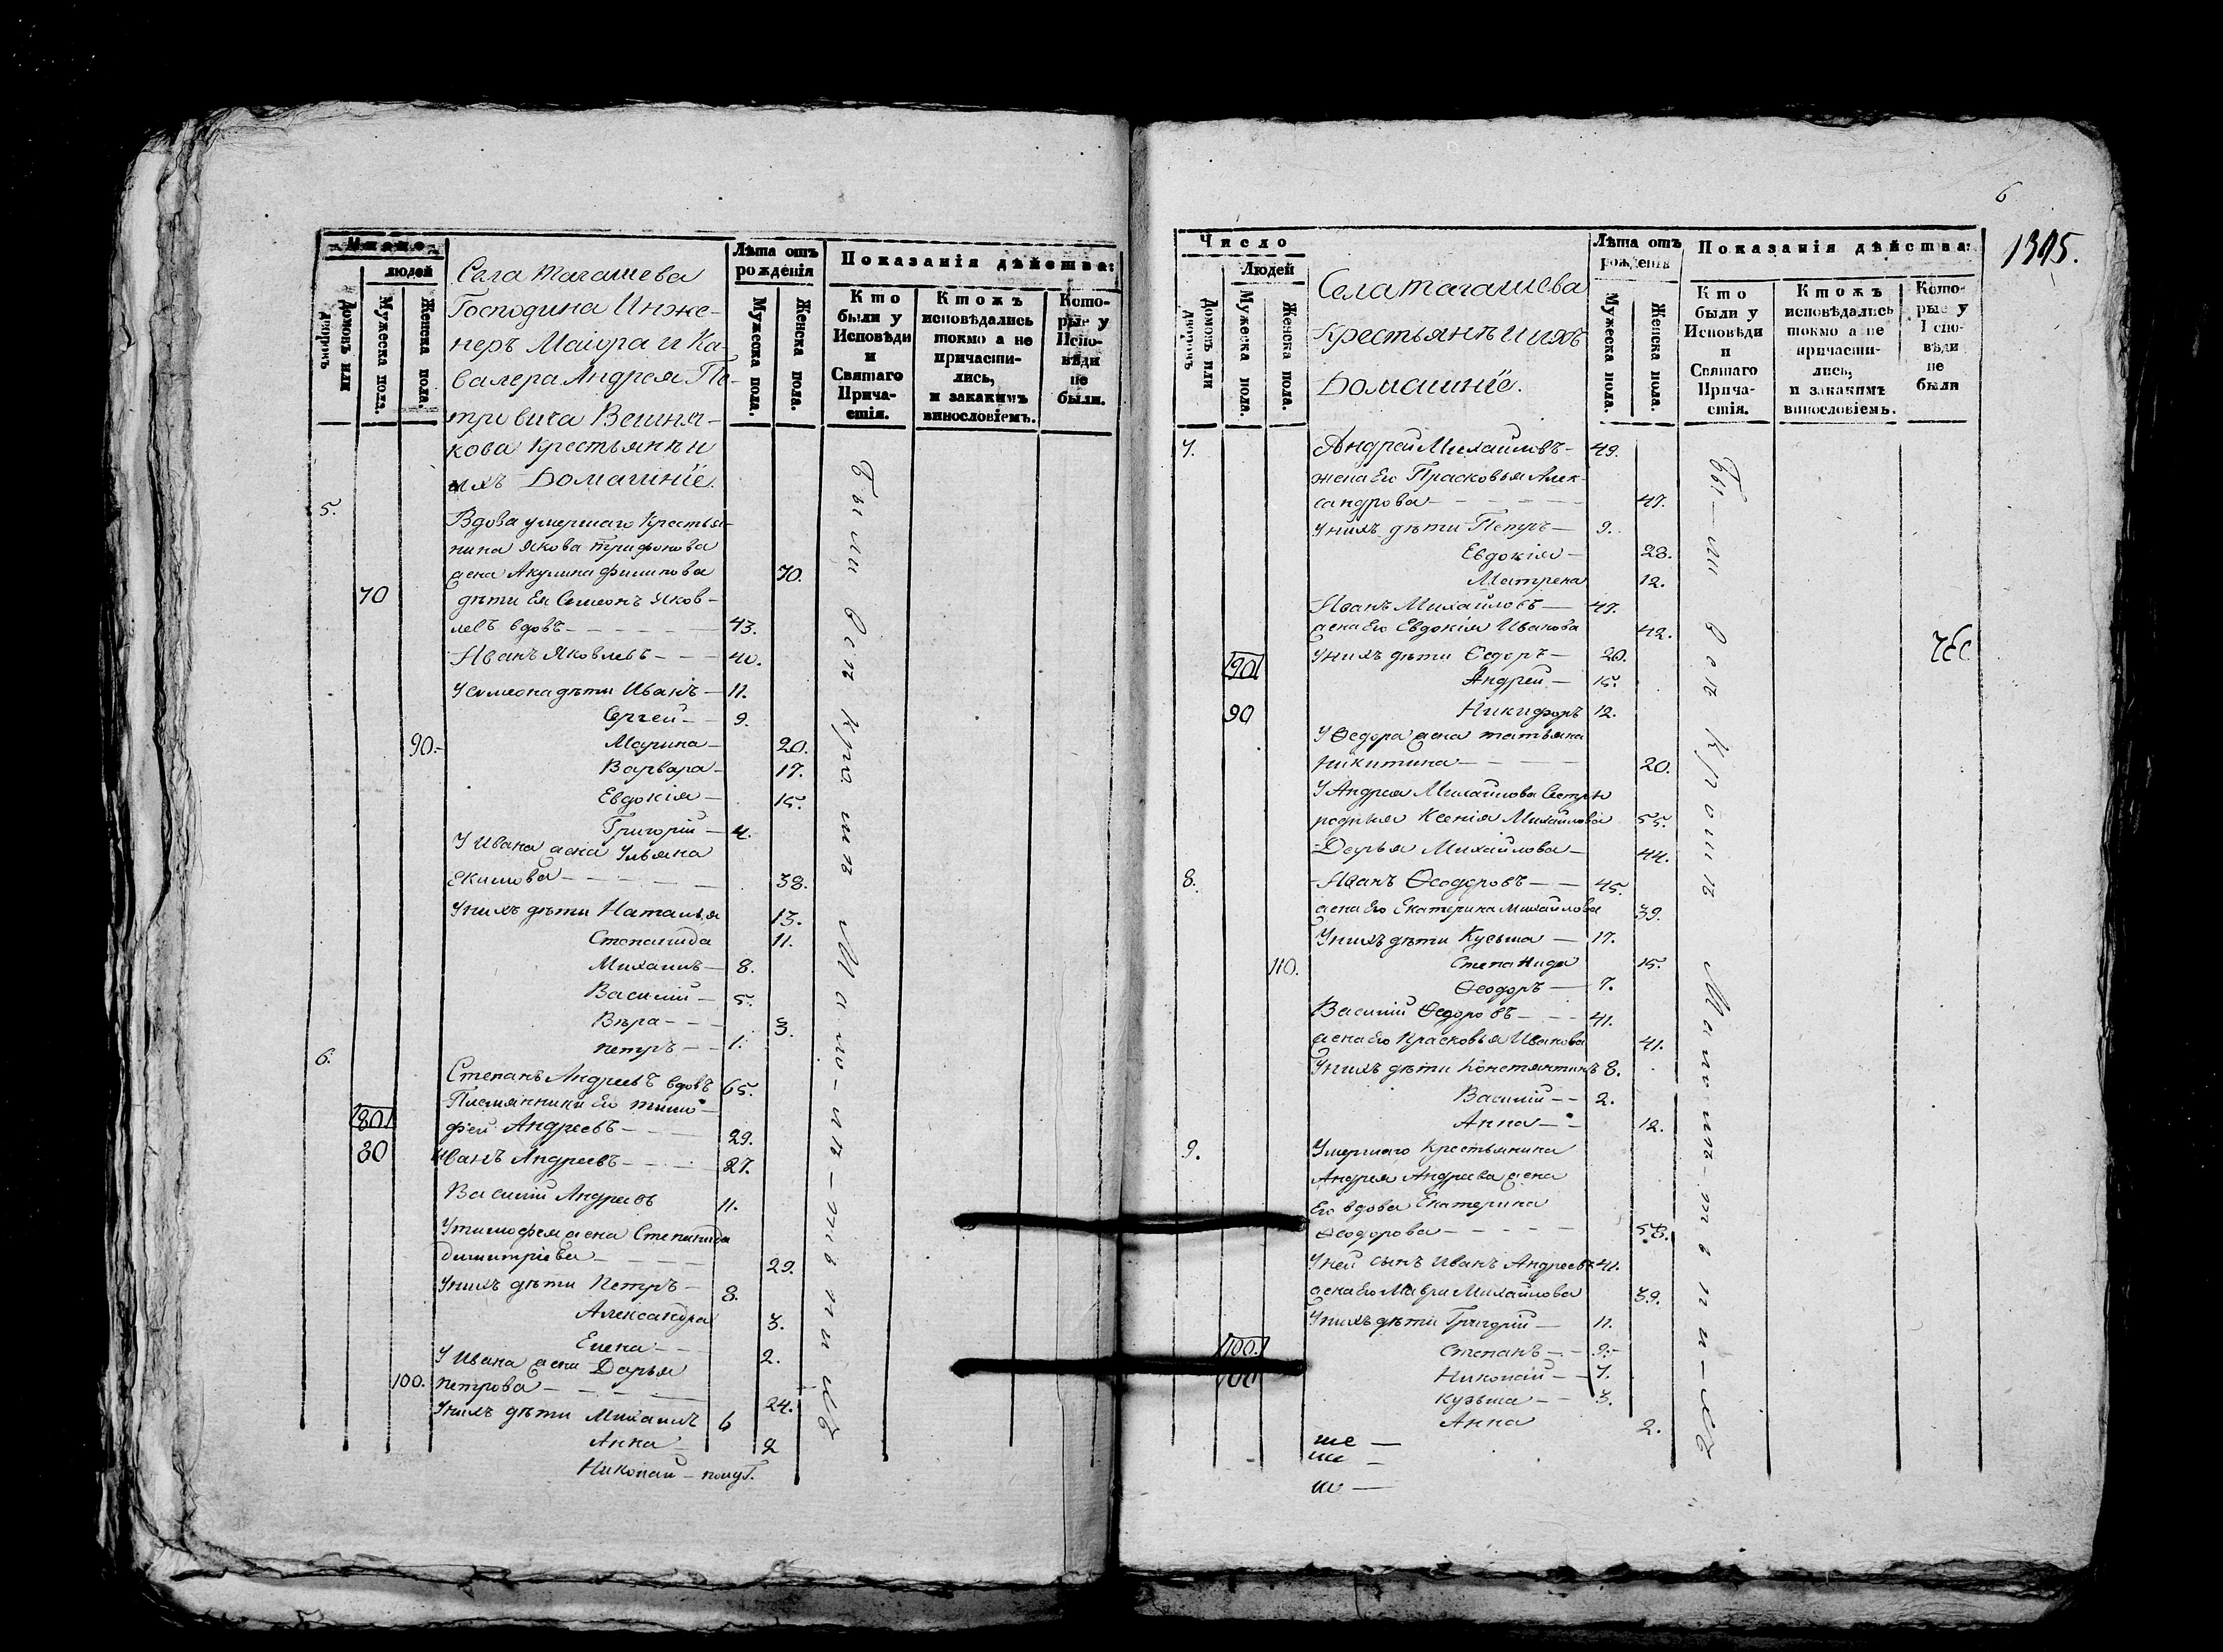 Число
людей
Домовъ или дворовъ
Мужеска пола.
Женска пола.
Села Тагашева
Господина Инже-
неръ Маіора и Ка-
валера Андрея Пе-
тровича Вешня-
кова крестьянѣ и
ихъ Домашніе.
Лѣта отъ рожденія
Мужеска пола.
Женска пола.
Показанія дѣйства:
Кто были у Исповѣди и Святаго Прича- стія.
Ктожъ исповѣдались токмо а не причасти- лись, и закакимъ винословіемъ.
Кото- рые у Испо- вѣди не были.
5. Вдова умершаго Крестья-
нина Якова Трифонова
жена Акулина Филипова 70.
70 дѣти Ея Симеонъ Яков-
левъ вдовъ - 43.
Иванъ Яковлевъ - 40.
У Симеона дѣти Иванъ - 11.
Сергей - 9.
90. Марина - 20.
Варвара - 17.
Евдокія - 15.
Григорій - 4.
У Ивана жена Ульяна
Екимова - 38.
У нихъ дѣти Наталья 13.
Степанида 11.
Михаилъ - 8.
Василій - 5.
Вѣра - 3.
Петръ - 1.
6. Степанъ Андреевъ вдовъ 65.
Племянники Его Тимо-
80 фей Андреевъ - 29.
80 Иванъ Андреевъ - 27.
Василій Андреевъ 11.
У Тимофея жена Степанида
Димитріева - 29.
У нихъ дѣти Петръ - 8.
Александра 3.
Елена - 2.
У Ивана жена Дарья
100. Петрова - 24.
У нихъ дѣти Михаилъ 6
Анна - 2
Николай - полуг.
Были
6
1395.
Число
Людей
Домовъ или дворовъ
Мужеска пола.
Женска пола.
Села Тагашева
Крестьянѣ и ихъ
Домашніе.
Лѣта отъ рожденія
Мужеска пола.
Женска пола.
Показанія дѣйства:
Кто были у Исповѣди и Святаго Прича- стія.
Ктожъ исповѣдались токмо а не причасти- лись, и закакимъ винословіемъ.
Кото- рые у Испо- вѣди не были
7. Андрей Михайловъ - 49.
жена Его Прасковья Алек-
сандрова - 47.
У нихъ дѣти Петръ - 9.
Евдокія - 28.
Матрена 12.
Иванъ Михайловъ - 47.
жена Его Евдокія Иванова 42.
90 У нихъ дѣти Ѳедоръ - 20.
Андрей - 15.
90 Никифоръ 12.
У Ѳедора жена Татьяна
Никитина - 20.
У Андрея Михайлова Сестры
родныя Ксенія Михайлова 55.
Дарья Михайлова - 44.
8. Иванъ Ѳеодоровъ - 45.
жена Его Екатерина Михайлова 39.
У нихъ дѣти Кузьма - 17.
110. Степанида 15.
Ѳеодоръ - 7.
Василій Ѳедоровъ - 41.
жена Его Прасковья Иванова 41.
У нихъ дѣти Константинъ 8.
Василій - 2.
Анна - 12.
9. Умершаго Крестьянина
Андрея Андреева жена
Его вдова Екатерина
Ѳеодорова - 58.
У ней сынъ Иванъ Андреевъ 41.
жена Его Мавра Михайлова 39.
У нихъ дѣти Григорій - 11.
100. Степанъ - 9.
100 Николай - 7.
Кузьма - 3.
Анна 2.
Были